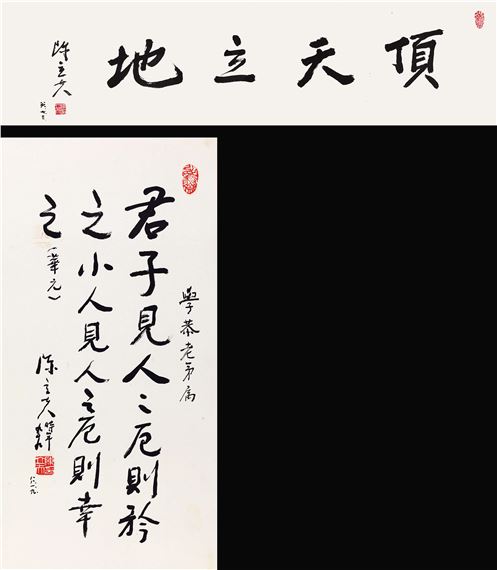 頂天立地
陳立夫
學恭老弟屬
君子見人之厄則矜
之小人見人之厄則幸
之(華元)
陳立夫